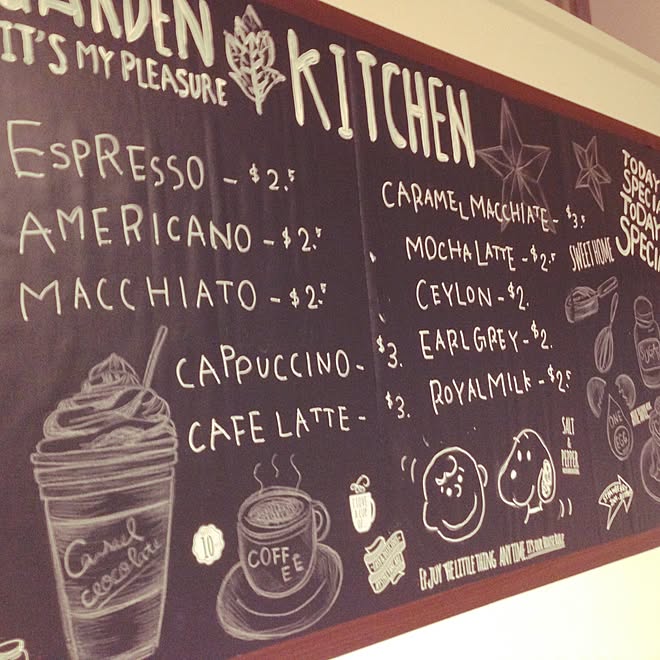 GARDEN KITCHEN
IT'S MY PLEASURE
ESPRESSO - $2.5
AMERICANO - $2.5
MACCHIATO - $2.5
CAPPUCCINO - $3.
CAFE LATTE - $3.
CARAMEL MACCHIATE - $3.5
MOCHA LATTE - $2.5
CEYLON - $2.
EARL GREY - $2.
ROYAL MILK - $2.5
TODAY
SPECIAL
TODAY
SPECIAL
SWEET HOME
SUGAR
ONE
EGG
SALT
&
PEPPER
Caramel
cocolate
10
COFF
EE
ENJOY THE LITTLE THING ANYTIME IT'S OUR